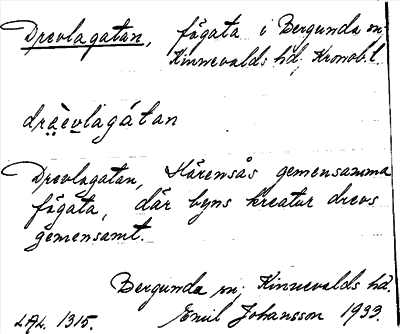 Drevlagatan, fägata i Bergunda sn,
Kinnevalds hd, Kronob. l.
dräevlagátan
Drevlagatan, Härensås gemensamma
fägata, där byns kreatur drevs
gemensamt.
Bergunda sn, Kinnevalds hd.
LAL. 1315. Emil Johansson 1933.